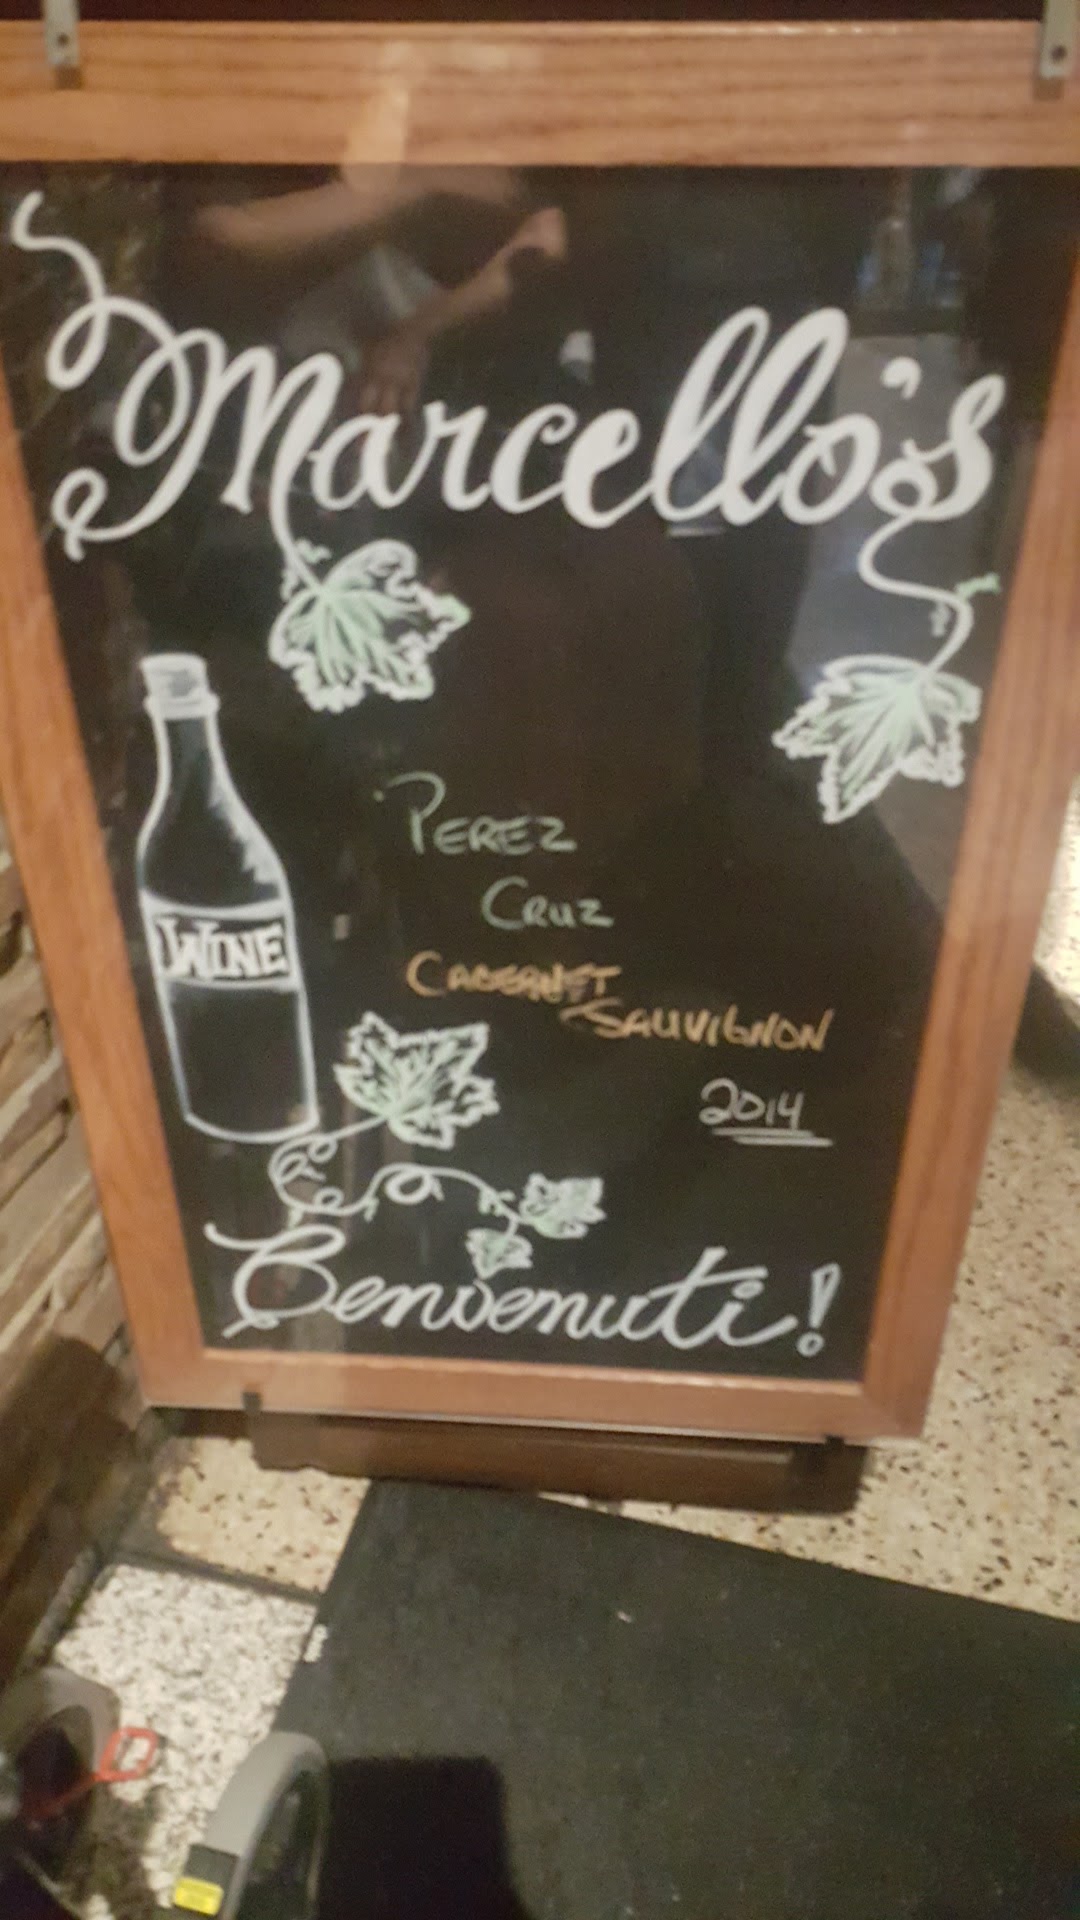 Marcello's
WINE
PEREZ
CRUZ
CABERNET
SAUVIGNON
2014
Benvenuti!